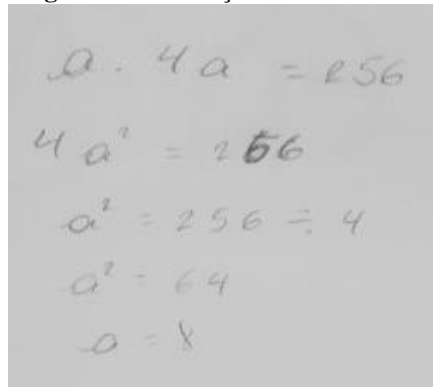 a . 4a = 256
4a² = 256
a² = 256 ÷ 4
a² = 64
a = 8